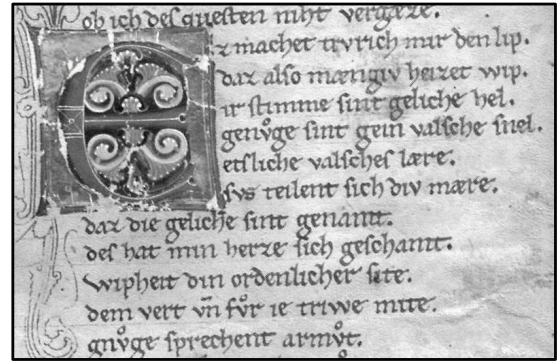 ob ich des questen niht vergæze.
Ez machet trvrich mir den lip.
daz also mængiv heizet wip.
ir stimme sint geliche hel.
genvͦge sint gein valsche snel.
etsliche valsches lære.
svs teilent sich div mære.
daz die geliche sint genamt.
des hat min herze sich geschamt.
wipheit din ordenlicher site.
dem vert vn̄ fvͦr ie triwe mite.
gnvͦge sprechent armvͦt.